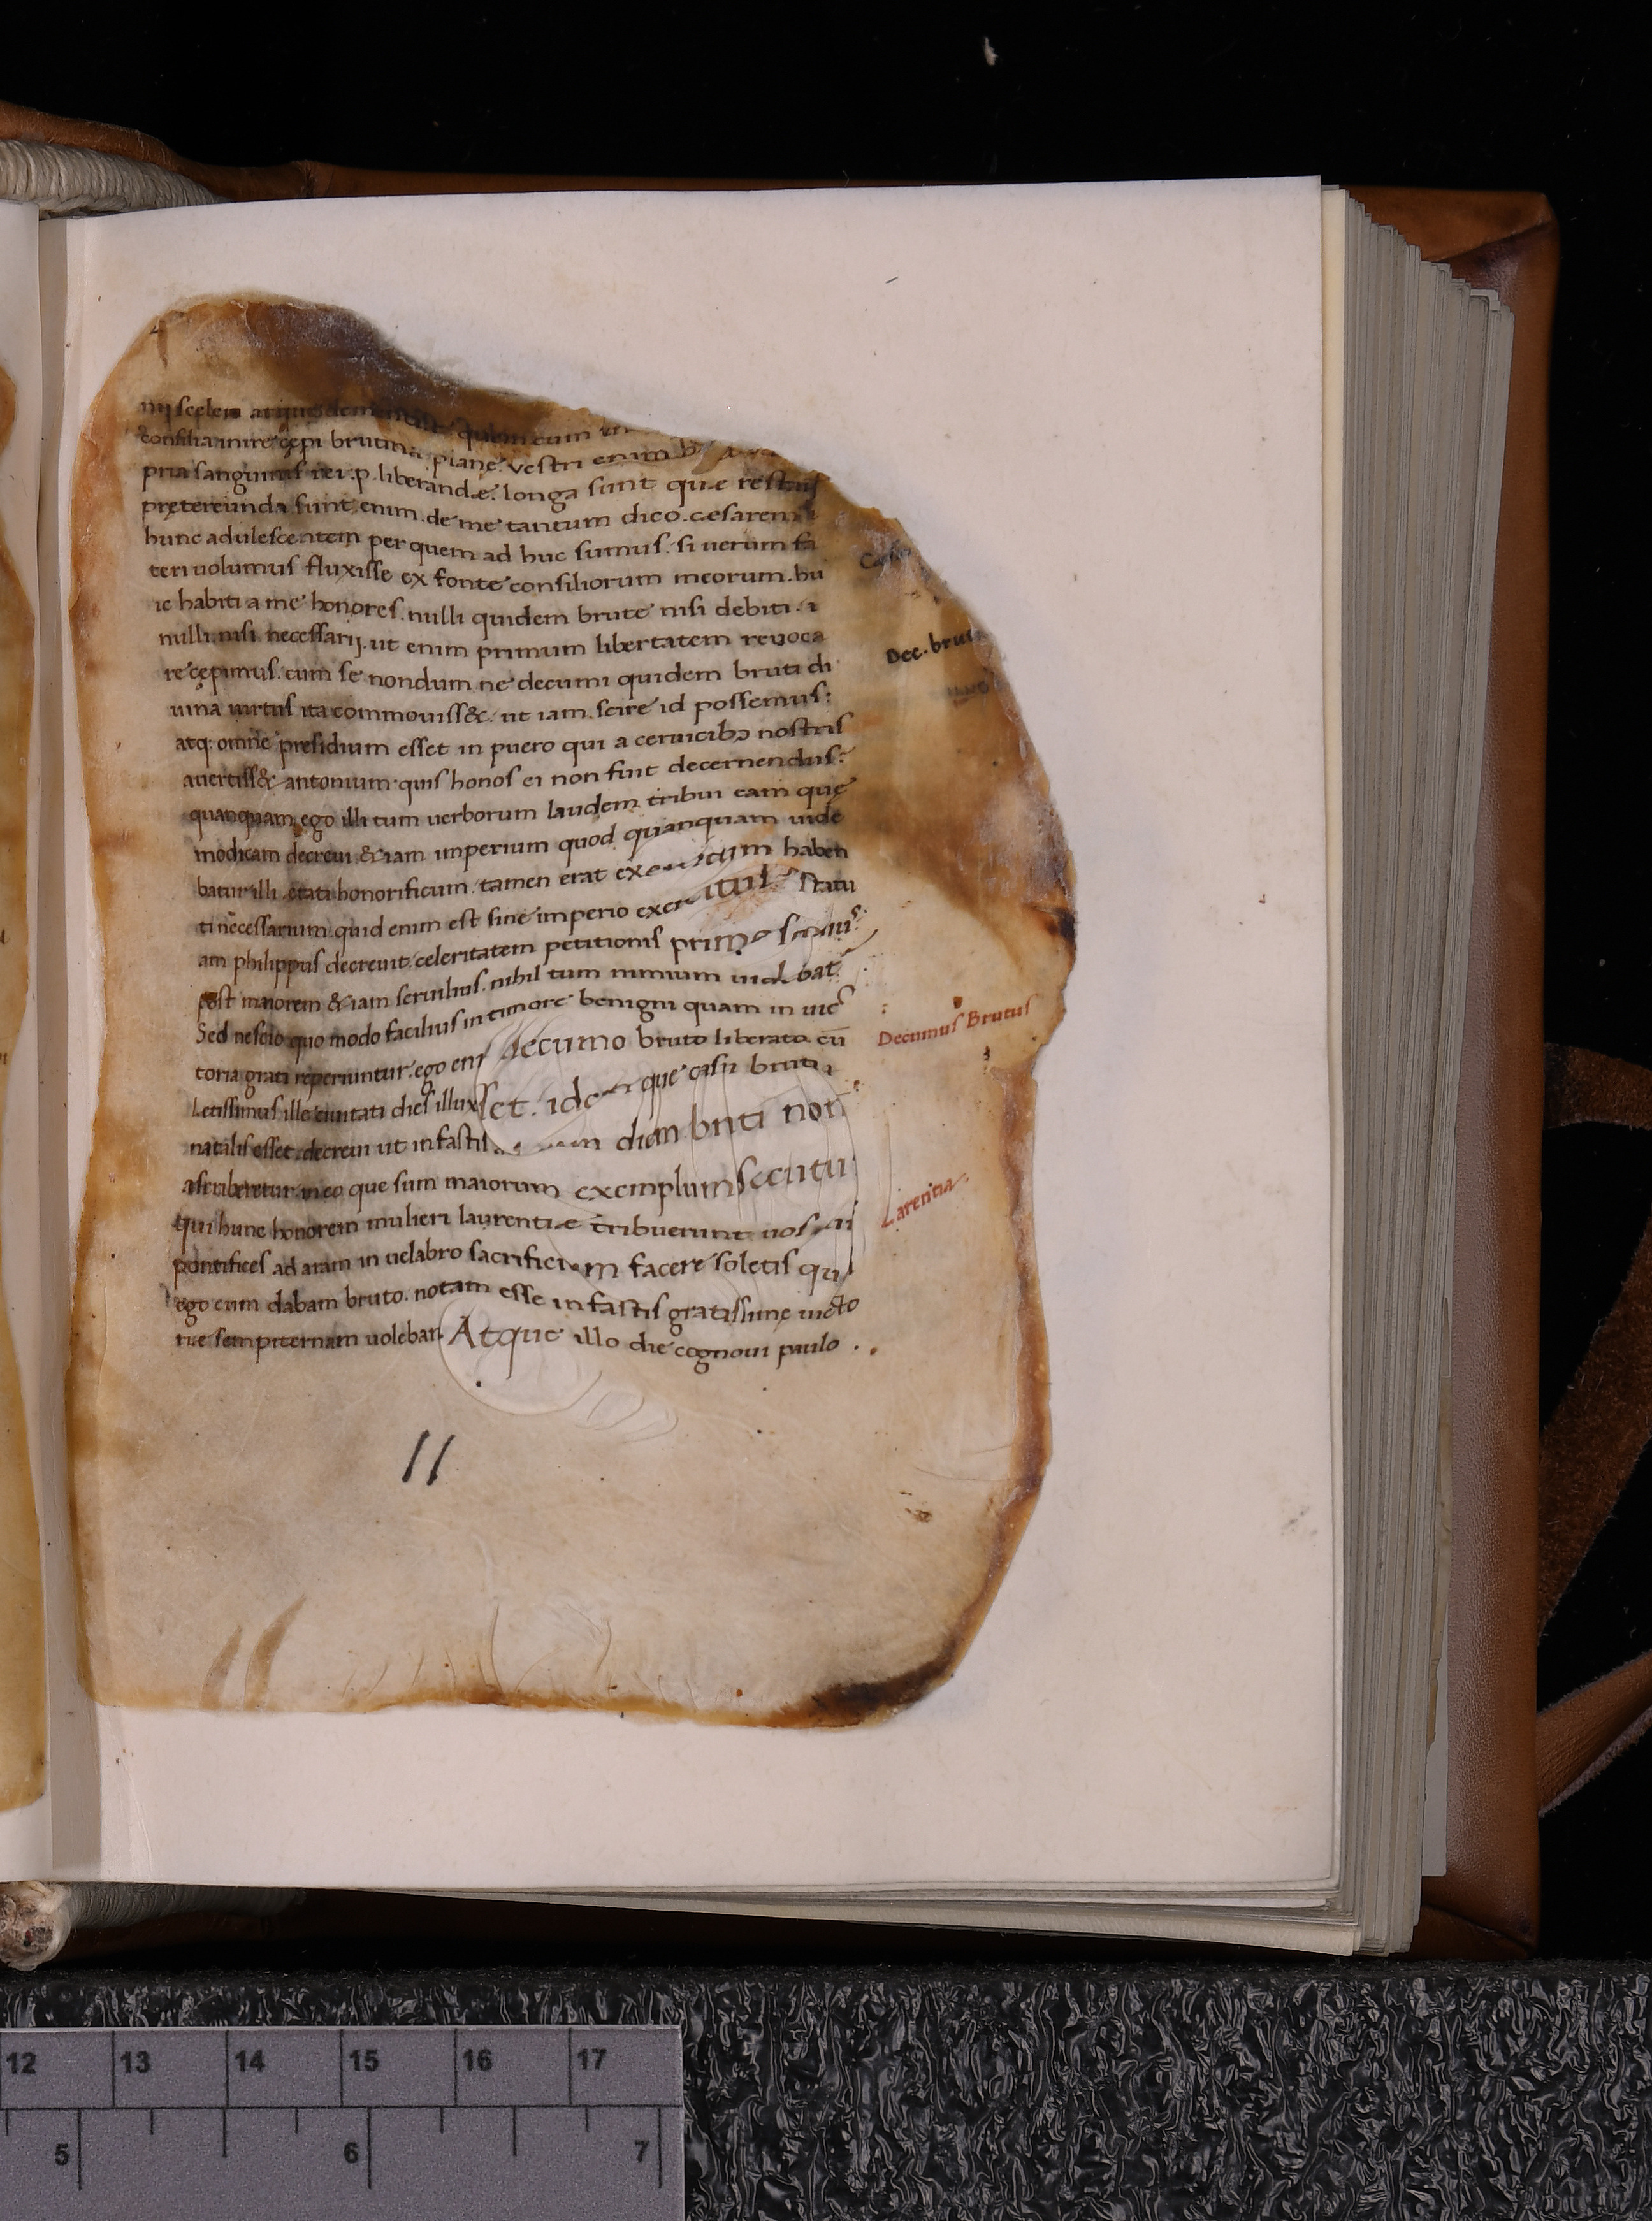 mij sceleris atque dementię quam cum
consilia inire cępi brutina piane vestri enim
pria sanguinis rei.p. liberandæ. longa sunt quæ restant
pretereunda sunt enim. de me tantum dico. cæsarem
hunc adulescentem per quem ad huc sumus. si verum fa
teri volumus fluxisse ex fonte consiliorum meorum. hu
ic habiti a me honores. nulli quidem brute nisi debiti.
nulli. nisi necessarij. ut enim primum libertatem revoca
re cępimus. cum se nondum ne decumi quidem bruti di
vina virtus ita commoviss&. ut iam scire id possemus:
atq: omne presidium esset in puero qui a cervicib; nostris
averciss& antonium. quis honos ei non fuit decernendus:
quanquam ego illi tum verborum laudem tribui eam que
modicam decrevi. & iam imperium quod quanquam vide
batur illi etati honorificum. tamen erat exercitum haben
ti necessarium. quid enim est sine imperio exercitus. Statu
am philippus decrevit. celeritatem petitionis primo servius.
post maiorem & iam servilius. nihil tum nimium videbat.
Sed nescio quo modo facilius in timore benigni quam in vic
toria grati reperiuntur. ego eni decumo bruto liberato. cū
Letissimus ille civitati dies illuxisset. idemque casu bruti
natalis esset. decrevi ut in fastis diem bruti non
ascriberetur. in eo que sum maiorum exemplum secutu
qui hunc honorem mulieri laurentiæ tribuerunt
pontifices ad aram in velabro sacrificium facere soletis qu
ego cum dabam bruto. notam esse in fastis gratissime victo
riæ sempiternam volebam Atque illo die cognovi paulo
Dec. brut
Decumus Brutus
Larentia.
11